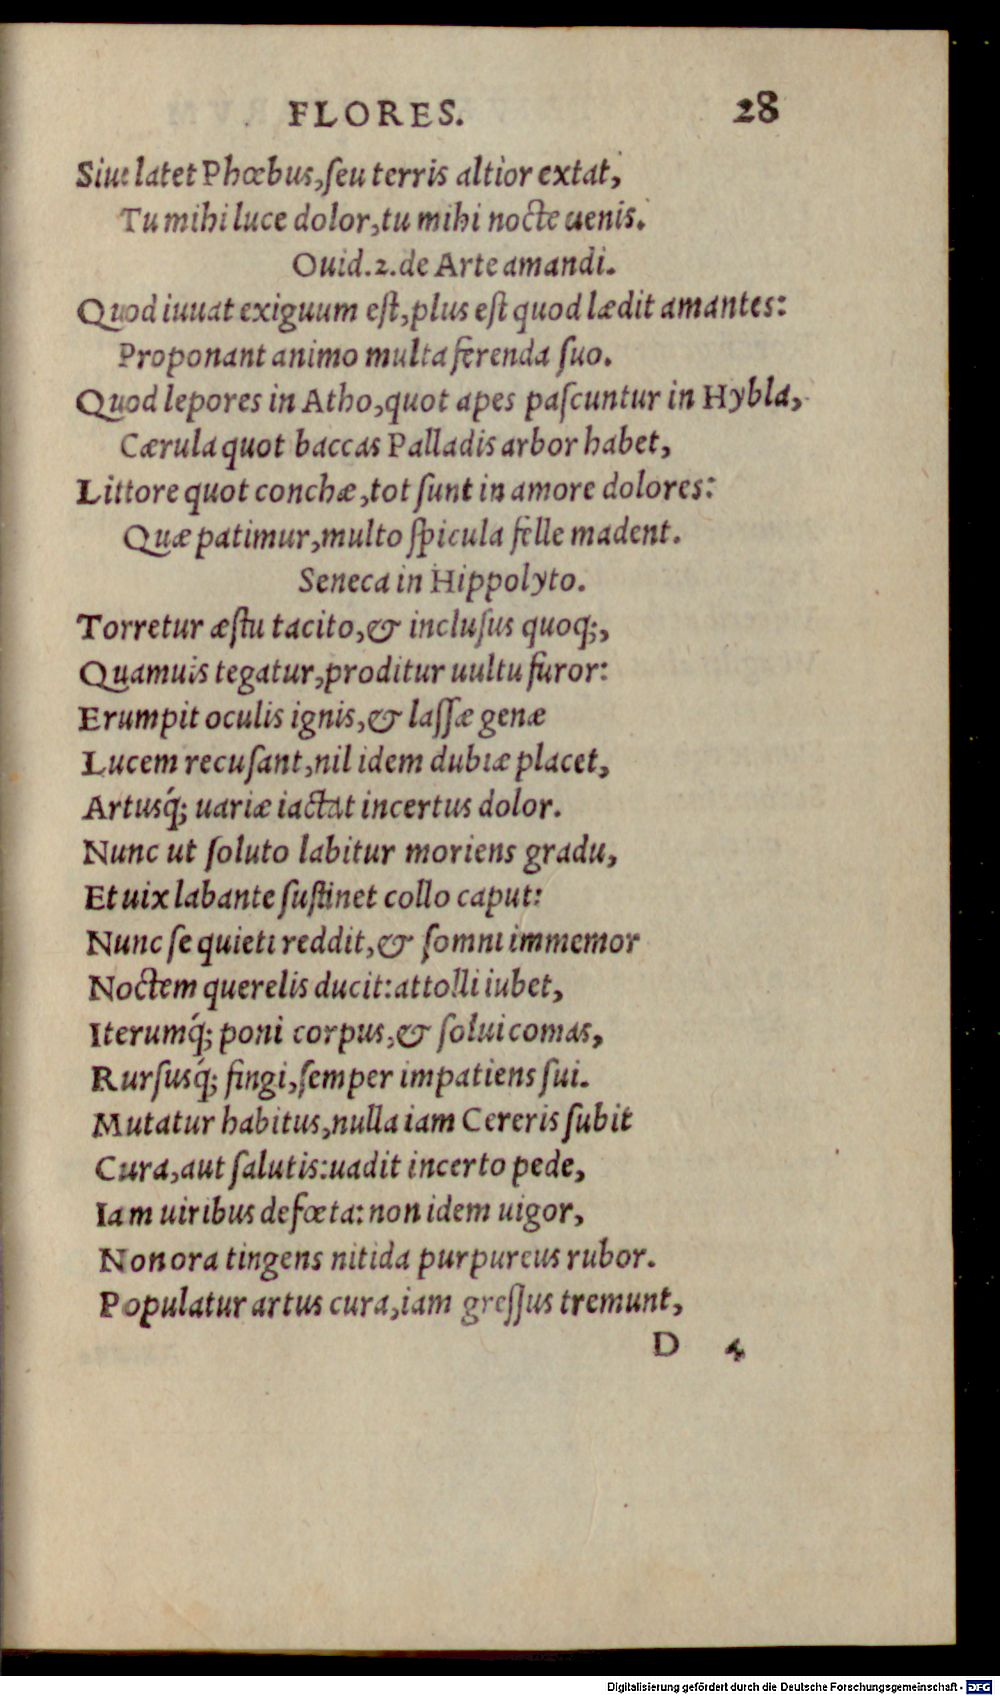 FLORES. 28
Siue latet Phœbus, ſeu terris altior extat,
Tu mihi luce dolor, tu mihi nocte uenis.
Ouid. 2. de Arte amandi.
Quod iuuat exiguum eſt, plus eſt quod lædit amantes:
Proponant animo multa ferenda ſuo.
Quod lepores in Atho, quot apes paſcuntur in Hybla,
Cærula quot baccas Palladis arbor habet,
Littore quot conchæ, tot ſunt in amore dolores:
Quæ patimur, multo ſpicula felle madent.
Seneca in Hippolyto.
Torretur æſtu tacito, & incluſus quoq;,
Quamuis tegatur, proditur uultu furor:
Erumpit oculis ignis, & laſſæ genæ
Lucem recuſant, nil idem dubiæ placet,
Artusq́; uariæ iactat incertus dolor.
Nunc ut ſoluto labitur moriens gradu,
Et uix labante ſuſtinet collo caput:
Nunc ſe quieti reddit, & ſomni immemor
Noctem querelis ducit: attolli iubet,
Iterumq́; poni corpus, & ſolui comas,
Rurſusq́; fingi, ſemper impatiens ſui.
Mutatur habitus, nulla iam Cereris ſubit
Cura, aut ſalutis: uadit incerto pede,
Iam uiribus defœta: non idem uigor,
Non ora tingens nitida purpureus rubor.
Populatur artus cura, iam greſſus tremunt,
D 4
Digitalisierung gefördert durch die Deutsche Forschungsgemeinschaft - DFG